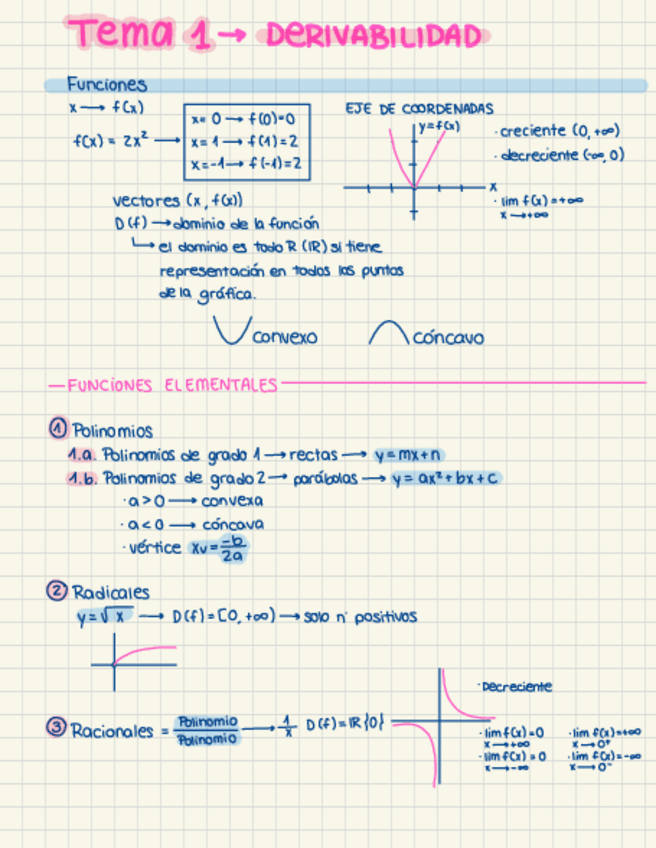 Tema 1 → DERIVABILIDAD
Funciones
x → f(x)
f(x) = 2x² →
x= 0 → f(0)=0
x= 1 → f(1)=2
x=-1 → f(-1)=2
EJE DE COORDENADAS
y=f(x)
x
· creciente (0, +∞)
· decreciente (-∞, 0)
· lim f(x)=+∞
x→+∞
vectores (x, f(x))
D(f) → dominio de la función
↳ el dominio es todo R (ℝ) si tiene
representación en todos los puntos
de la gráfica.
convexo
cóncavo
— FUNCIONES ELEMENTALES —
① Polinomios
1.a. Polinomios de grado 1 → rectas → y=mx+n
1.b. Polinomios de grado 2 → parábolas → y = ax²+bx+c
· a>0 → convexa
· a<0 → cóncava
· vértice xv = -b/2a
② Radicales
y=√x → D(f)=[0,+∞) → solo nº positivos
③ Racionales = Polinomio/Polinomio → 1/x D(f)=ℝ{0}
· Decreciente
· lim f(x)=0
x→+∞
· lim f(x)=0
x→-∞
· lim f(x)=+∞
x→0⁺
· lim f(x)=-∞
x→0⁻